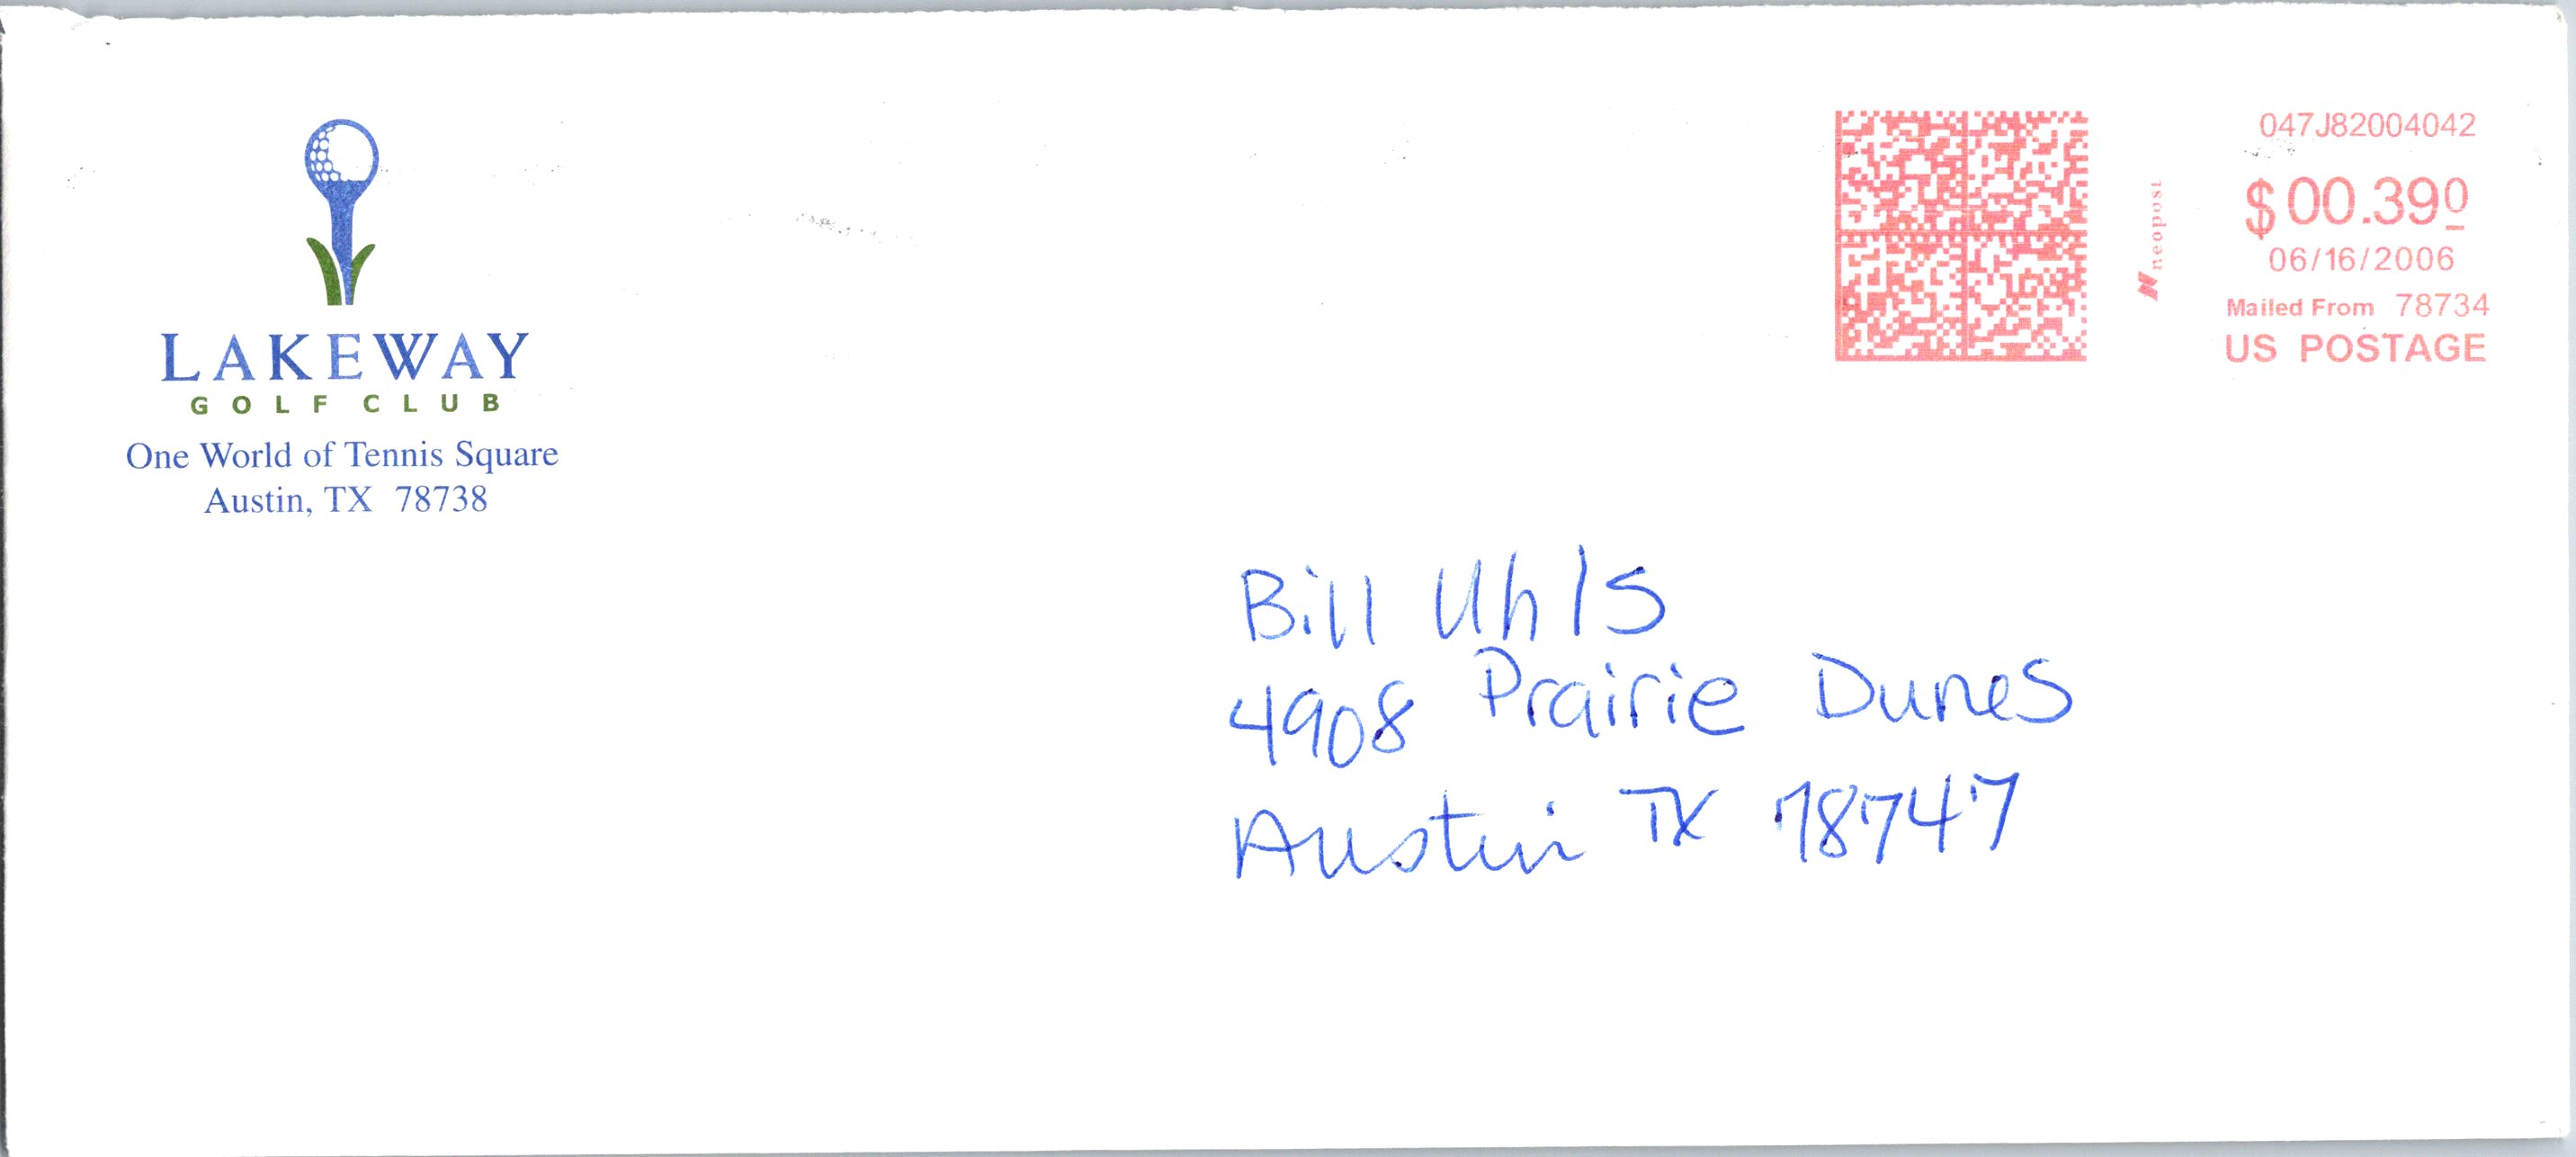 LAKEWAY
GOLF CLUB
One World of Tennis Square
Austin, TX 78738
neopost
047J82004042
$00.390
06/16/2006
Mailed From 78734
US POSTAGE
Bill Uhls
4908 Prairie Dunes
Austin TX 78747